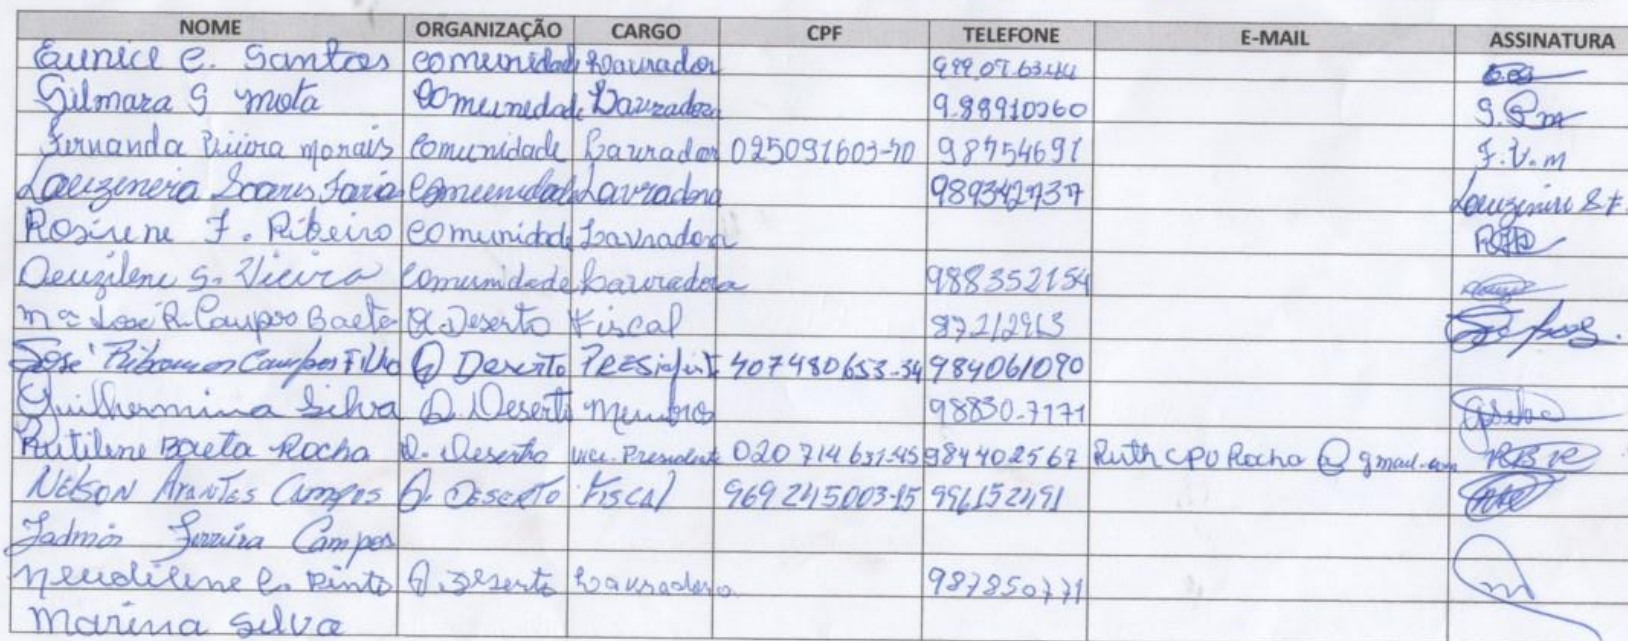 NOME ORGANIZAÇÃO CARGO CPF TELEFONE E-MAIL ASSINATURA
Eunice C. Santos comunidade Lavrador 999.07.6344
Gilmara G mota Comunidade Lavradora 9.88910260 G.G.m
Fernanda Vieira morais comunidade Lavrador 025091603-70 98754691 F.V.m
Leuzeneira Soares Faria Comunidade Lavradora 989342737 Leuzenire S F.
Rosirene F. Ribeiro comunidade Lavradora RFR
Deuzilene S. Vieira comunidade Lavradora 988352154
mª José R. Campos Baeta Q. Deserto Fiscal 87212963
José Ribamar Campos Filho Q Deserto PRESidente 407480653-34 984061090
Guilhermina Silva Q. Deserto Membros 98830-7171 GSilva
Rutilene Baeta Rocha Q. Deserto vice-Presidente 020714631-45 984402567 RuthCPURocha@gmail.com RBR
NELSON ArANTES CAmpos Q. DESERTO FISCAl 969245003-15 996152491
Jadmis Ferreira Campos
neudilene C. Pinto Q. Deserto Lavradora 987850771
marina silva